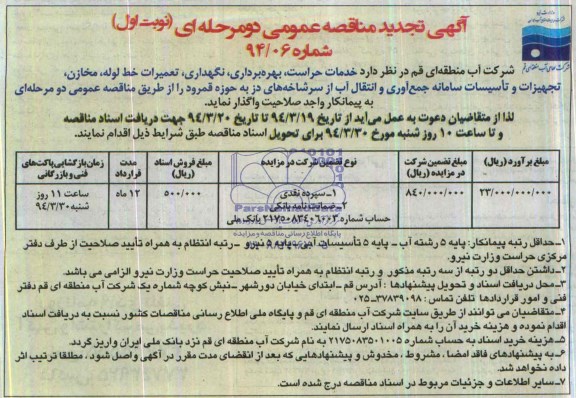 آگهی تجدید مناقصه عمومی دو مرحله ای (نوبت اول)
شماره ۹۴/۰۶
شرکت آب منطقه‌ای قم در نظر دارد خدمات حراست، بهره‌برداری، نگهداری، تعمیرات خط لوله، مخازن،
تجهیزات و تأسیسات سامانه جمع‌آوری و انتقال آب از سرشاخه‌های دز به حوزه قمرود را از طریق مناقصه عمومی دو مرحله‌ای
به پیمانکار واجد صلاحیت واگذار نماید.
لذا از متقاضیان دعوت به عمل می‌آید از تاریخ ۹۴/۳/۱۹ تا تاریخ ۹۴/۳/۲۰ جهت دریافت اسناد مناقصه
و تا ساعت ۱۰ روز شنبه مورخ ۹۴/۳/۳۰ برای تحویل اسناد مناقصه طبق شرایط ذیل اقدام نمایند.
مبلغ برآورد (ریال) مبلغ تضمین شرکت در مزایده (ریال) نوع تضمین شرکت در مزایده مبلغ فروش اسناد (ریال) مدت قرارداد زمان بازگشایی پاکت‌های فنی و بازرگانی
۲۳/۰۰۰/۰۰۰/۰۰۰ ۸۴۰/۰۰۰/۰۰۰ ۱-سپرده نقدی ۵۰۰/۰۰۰ ۱۲ ماه ساعت ۱۱ روز
۲-ضمانت نامه بانکی شنبه ۹۴/۳/۳۰
حساب شماره ۲۱۷۵۰۸۳۴۰۶۰۰۳ بانک ملی
پایگاه اطلاع رسانی مناقصه و مزایده
۱-حداقل رتبه پیمانکار: پایه ۵ رشته آب - پایه ۵ تأسیسات آبی- پایه ۵ نیرو -رتبه انتظام به همراه تأیید صلاحیت از طرف دفتر
مرکزی حراست وزارت نیرو.
۲-داشتن حداقل دو رتبه از سه رتبه مذکور و رتبه انتظام به همراه تأیید صلاحیت حراست وزارت نیرو الزامی می باشد.
۳-محل دریافت اسناد و تحویل پیشنهادها : آدرس قم -ابتدای خیابان دورشهر -نبش کوچه شماره یک شرکت آب منطقه ای قم دفتر
فنی و امور قراردادها تلفن تماس: ۳۷۸۳۹۰۹۸-۰۲۵
۴-متقاضیان می توانند از طریق سایت شرکت آب منطقه ای قم و پایگاه ملی اطلاع رسانی مناقصات کشور نسبت به دریافت اسناد
اقدام نموده و هزینه خرید آن را به همراه اسناد ارسال نمایند.
۵-هزینه خرید اسناد به حساب شماره ۲۱۷۵۰۸۳۵۰۱۰۰۵ به نام شرکت آب منطقه ای قم نزد بانک ملی ایران واریز گردد.
۶-به پیشنهادهای فاقد امضا ، مشروط ، مخدوش و پیشنهادهایی که بعد از انقضای مدت مقرر در آگهی واصل شود ، مطلقا ترتیب اثر
داده نخواهد شد.
۷-سایر اطلاعات و جزئیات مربوط در اسناد مناقصه درج شده است.